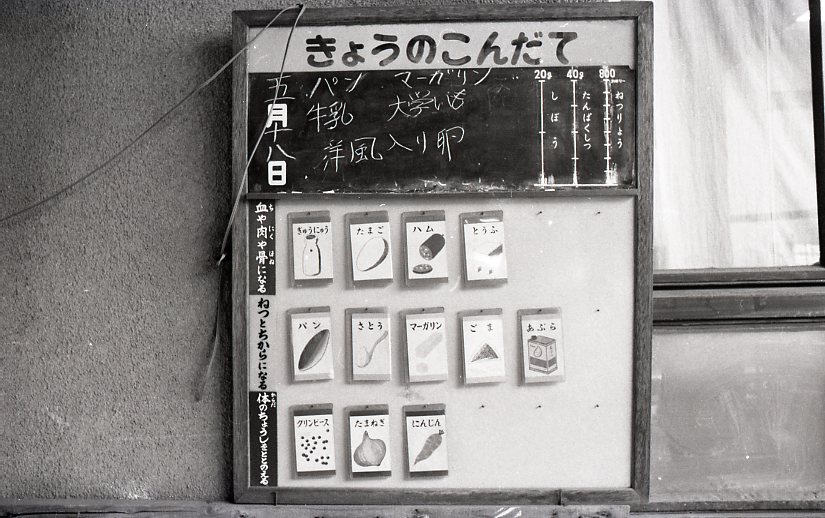 きょうのこんだて
五月十八日
パン マーガリン
牛乳 大学いも
洋風入り卵
20g 40g 800
しぼう
たんぱくしつ
ねつりょう
血や肉や骨になる
ち にく ほね
ぎゅうにゅう たまご ハム とうふ
ねつとちからになる
パン さとう マーガリン ごま あぶら
体のちょうしをととのえる
からだ
グリンピース たまねぎ にんじん